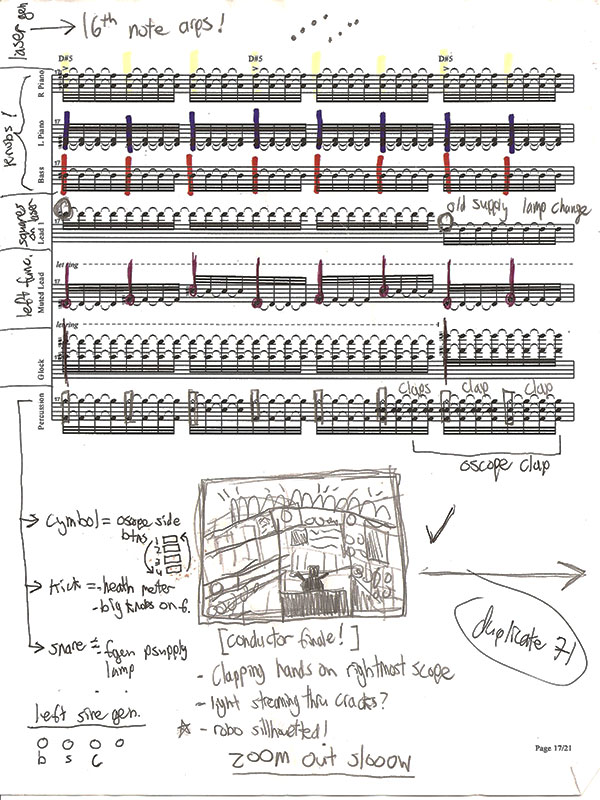 laser gen
→ 16th note arps!
D#5 D#5 D#5
17 R Piano
Knobs!
17 L Piano
17 Bass
squares on laser
17 Lead 1
old supply lamp change
left func.
let ring
17 Muted Lead
let ring
17 Glock
4
17 Percussion
claps clap clap
oscope clap
cymbol = oscope side btns
1
2
3
4
kick = - heath meter
- big knobs on f.
snare = fgen psupply lamp
left sine gen.
b s G
[conductor finale!]
- Clapping hands on rightmost scope
- light streaming thru cracks?
☆ - robo sillhouetted!
ZOOM OUT slooow
duplicate 71
Page 17/21